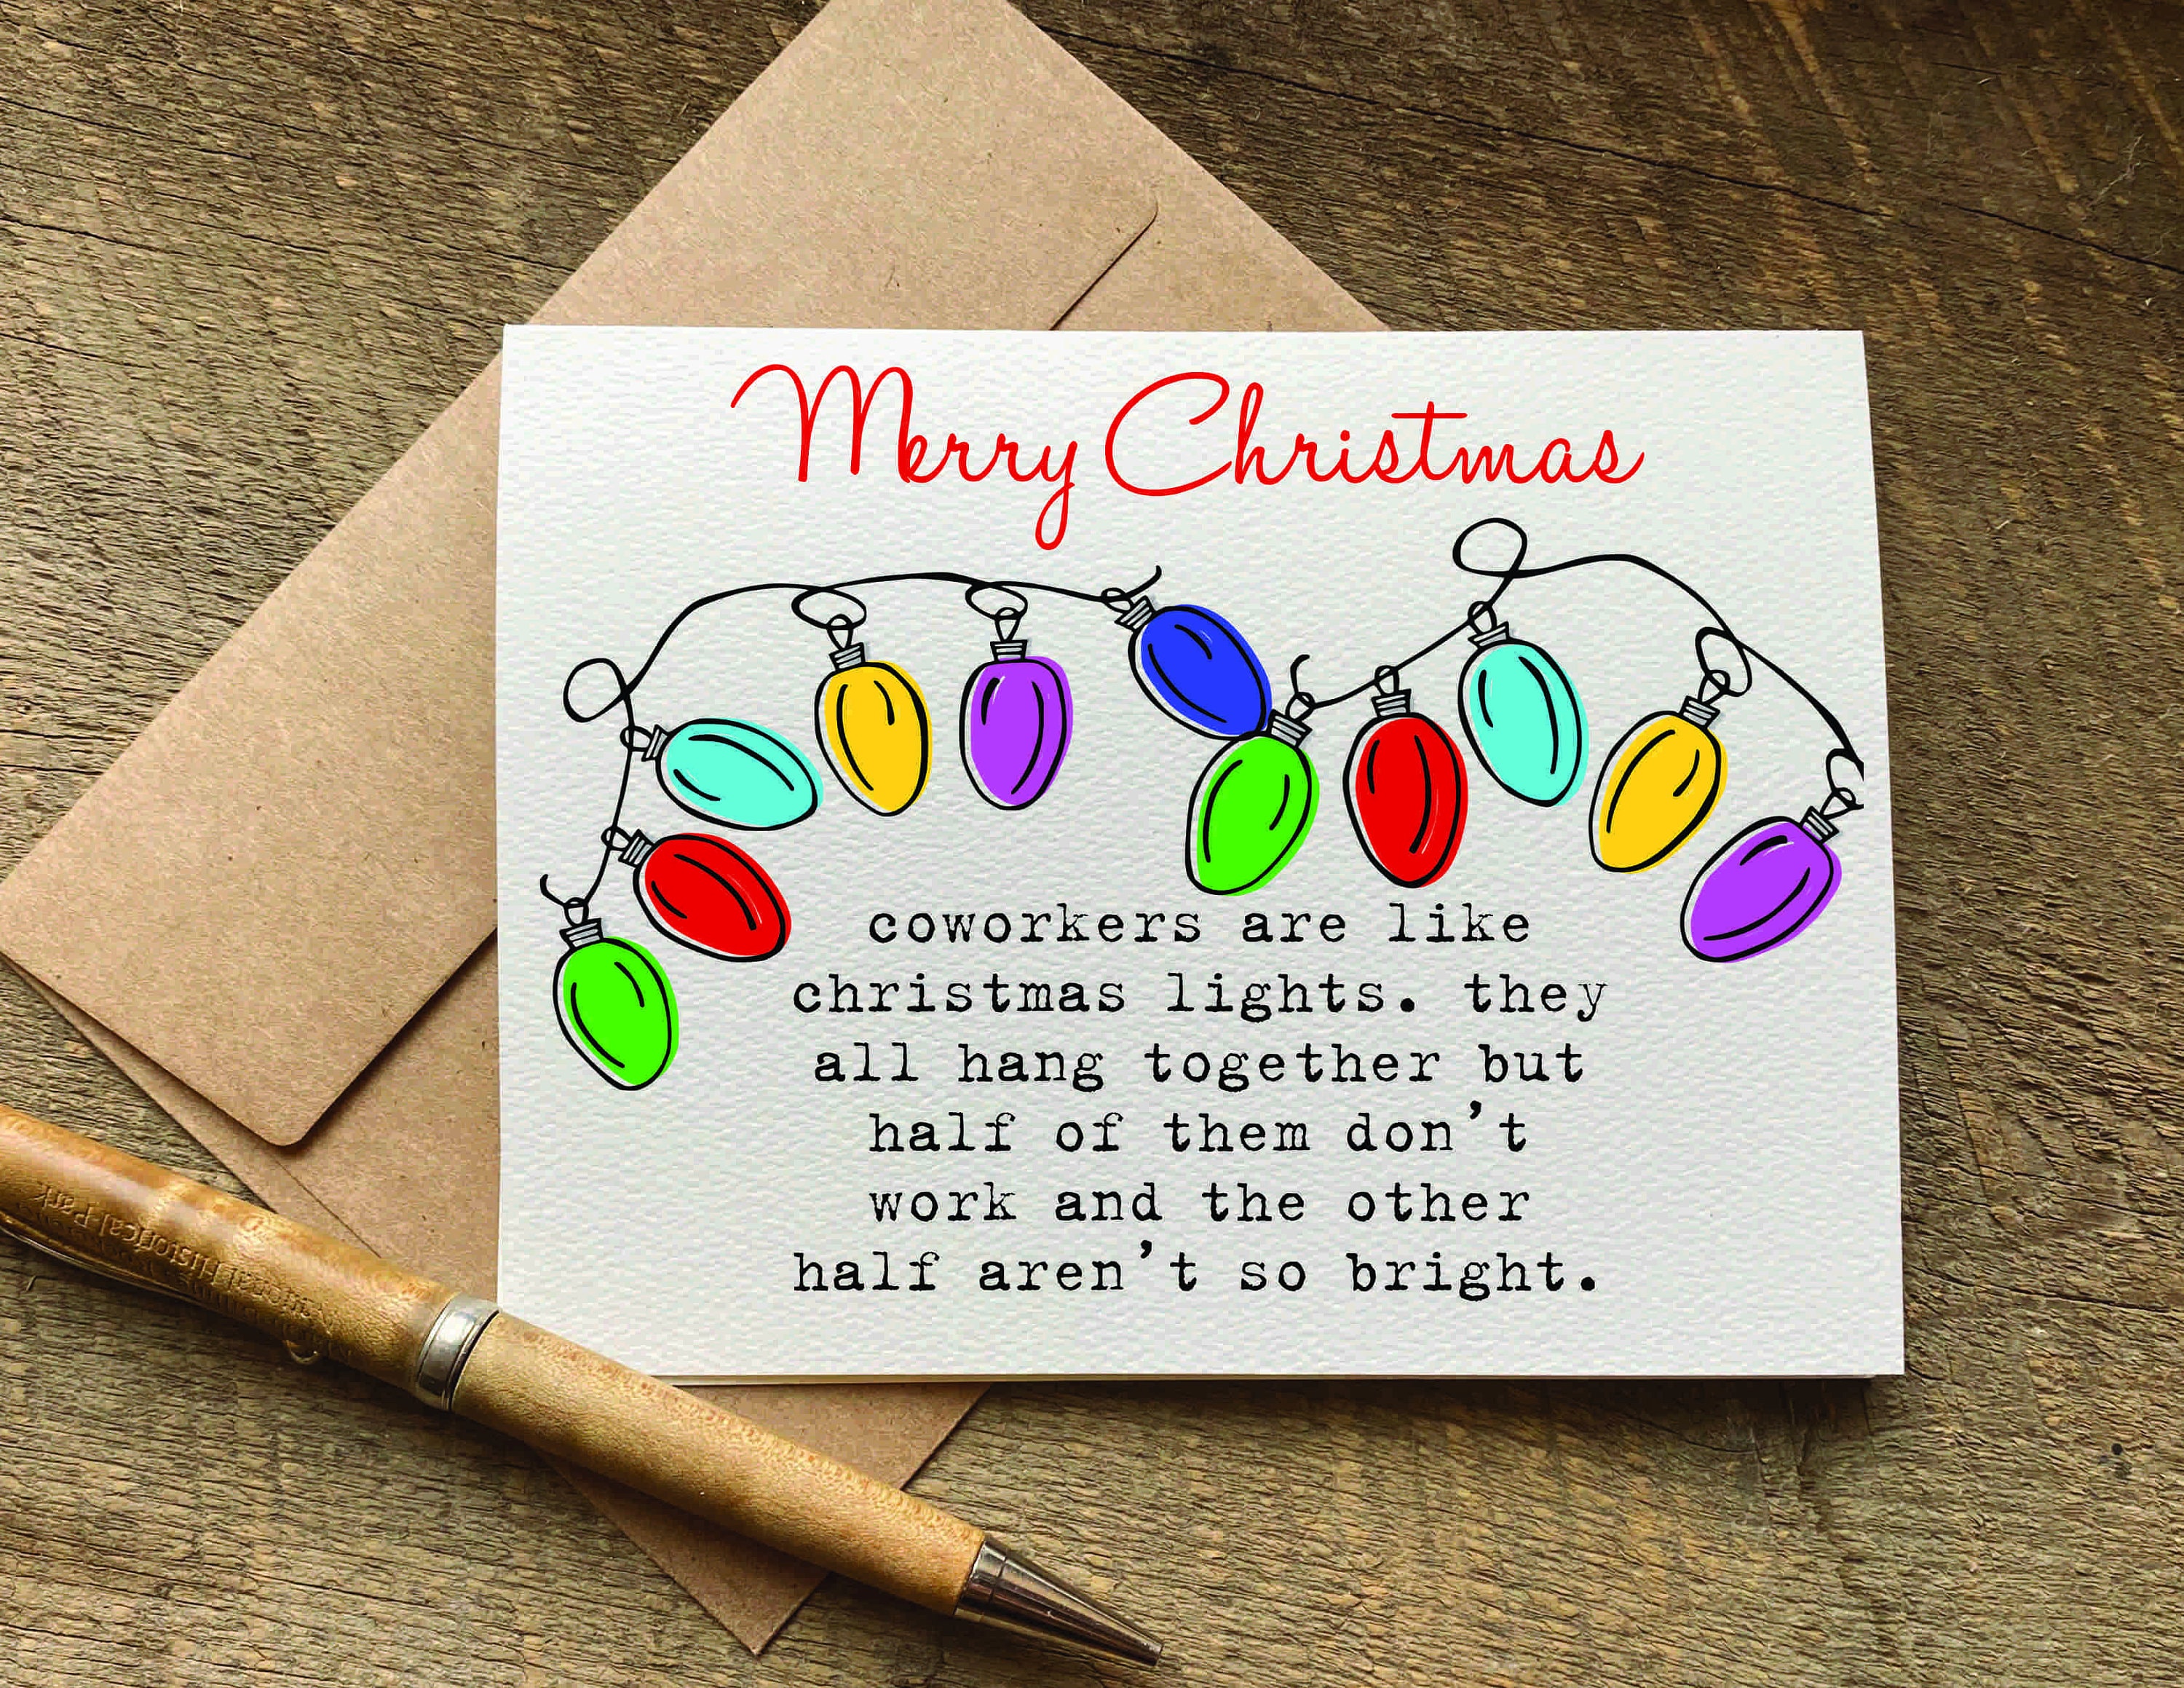 Merry Christmas
coworkers are like
christmas lights. they
all hang together but
half of them don't
work and the other
half aren't so bright.
National Historical Park